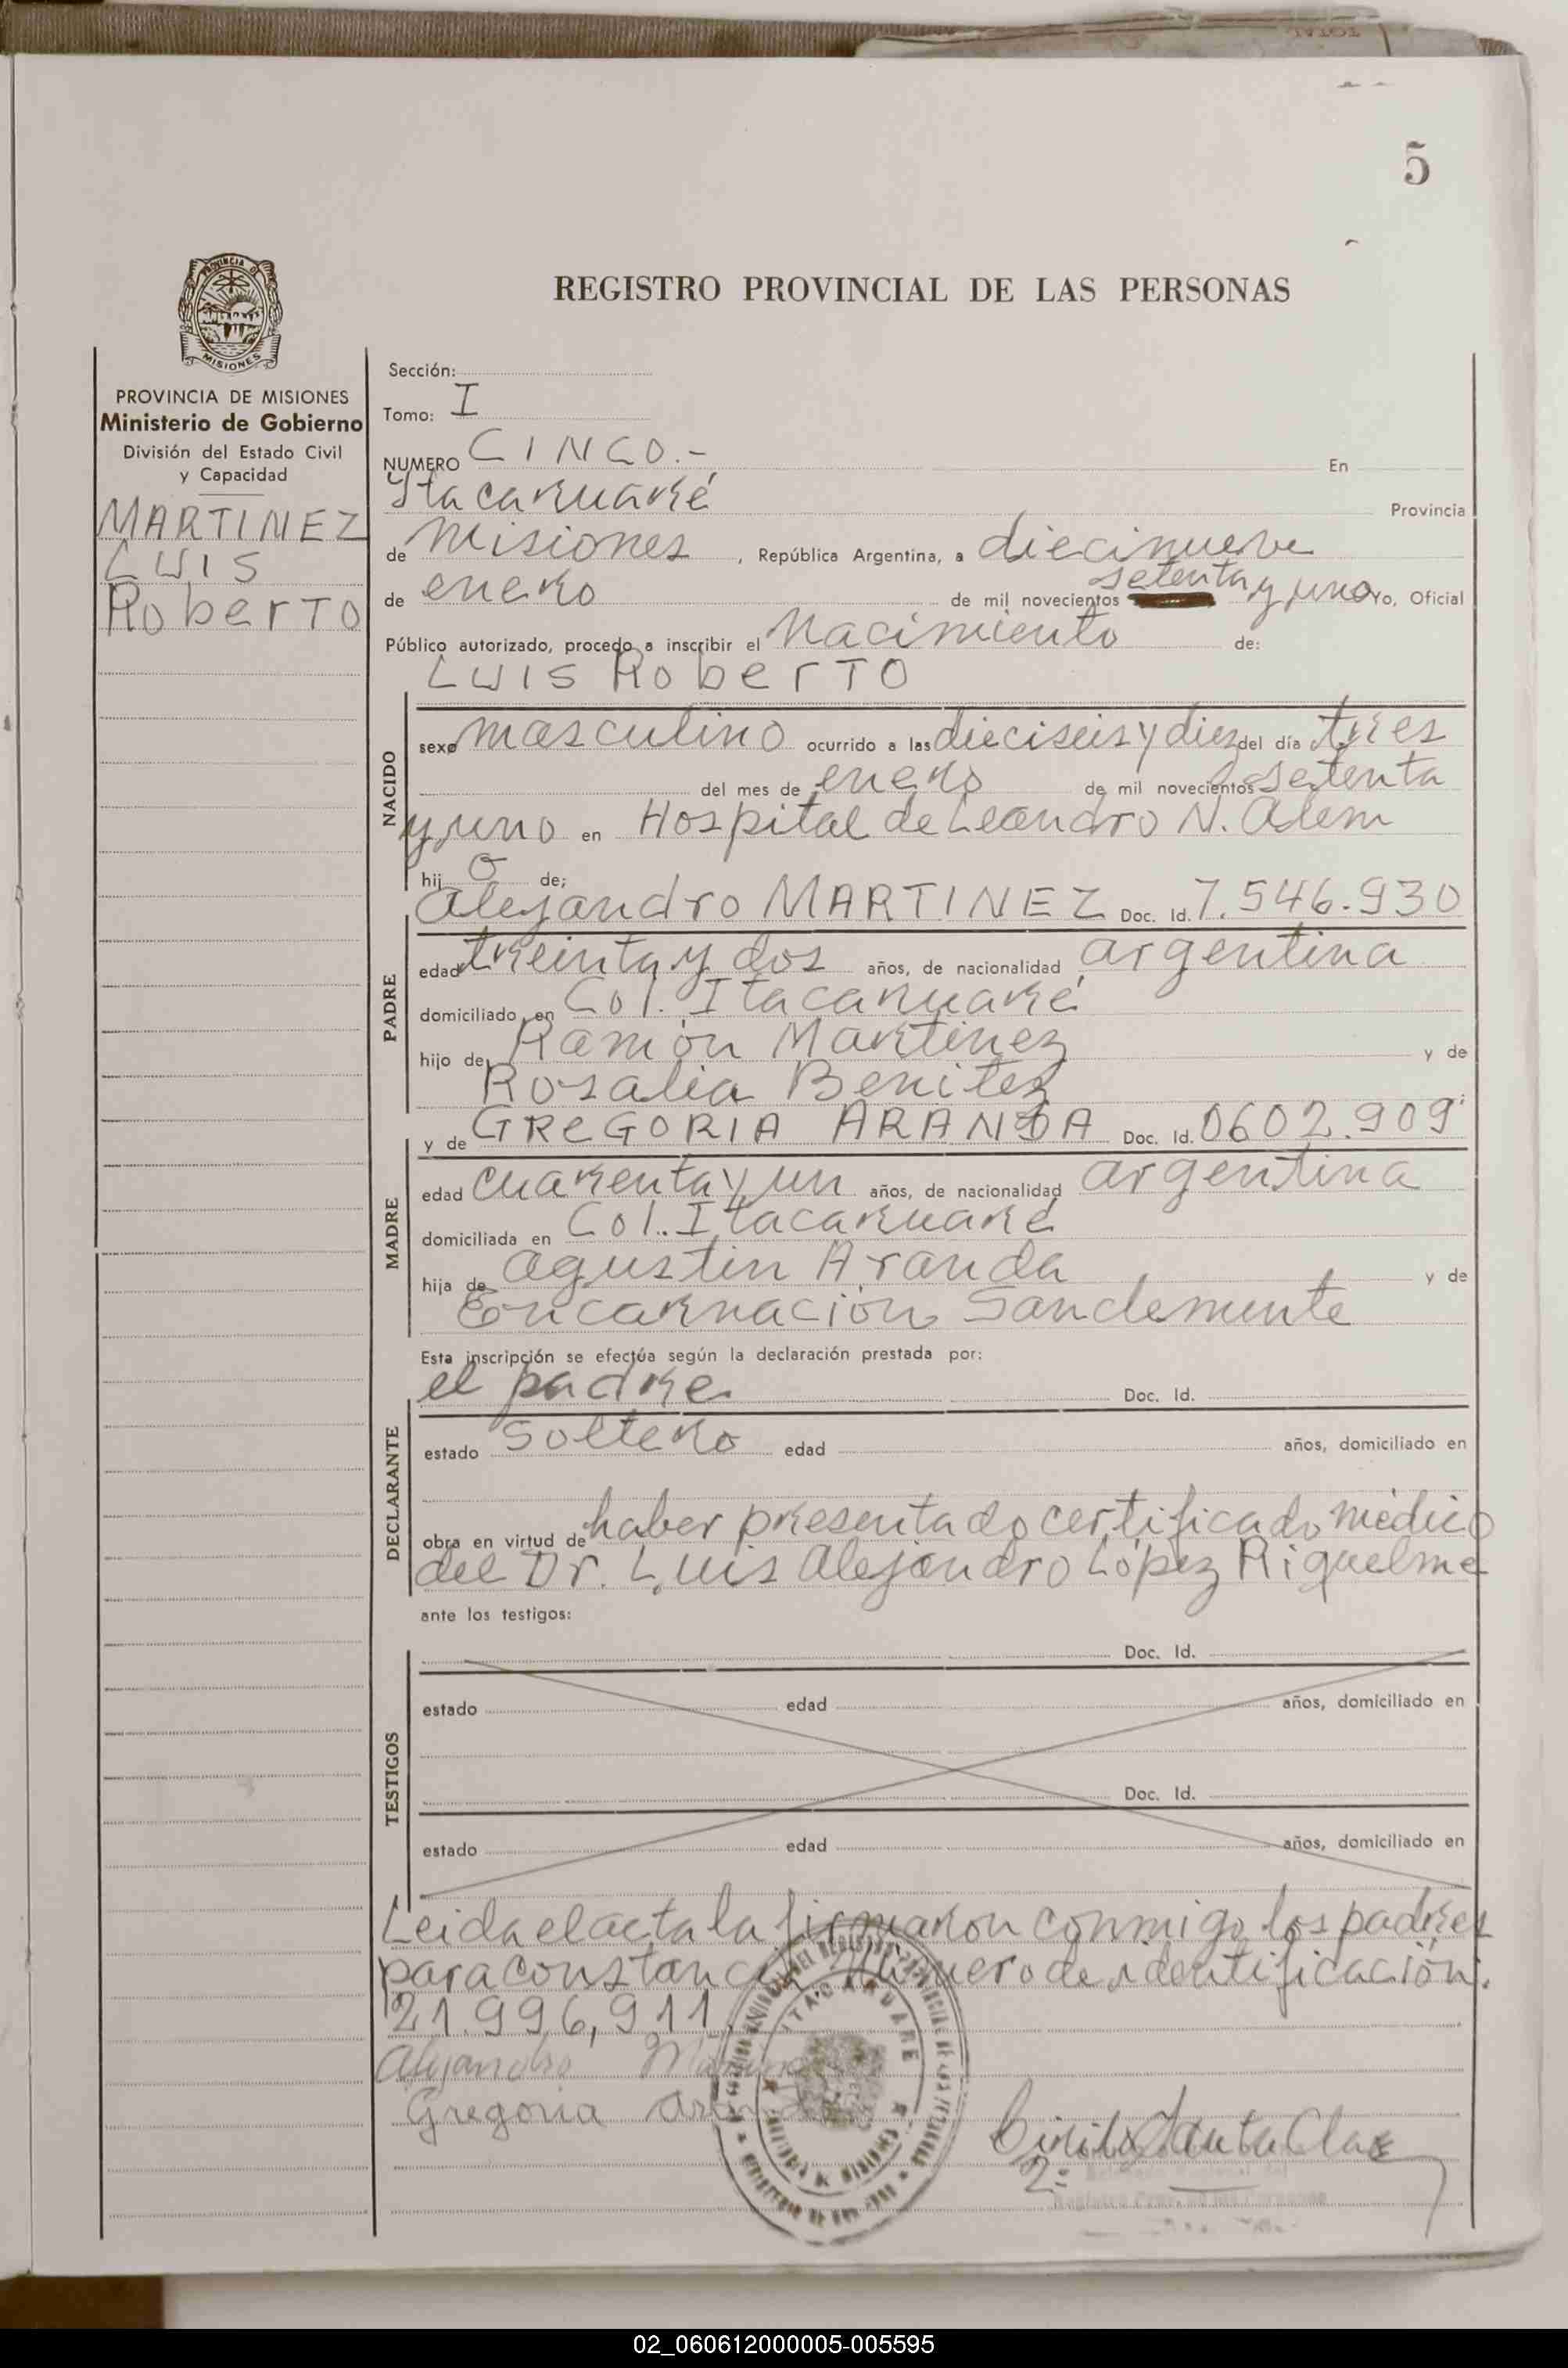 5
REGISTRO PROVINCIAL DE LAS PERSONAS
PROVINCIA DE
MISIONES
PROVINCIA DE MISIONES
Ministerio de Gobierno
División del Estado Civil
y Capacidad
MARTINEZ
LUIS
RoberTO
Sección:
Tomo: I
NUMERO CINCO.- En
Itacaruaré Provincia
de Misiones, República Argentina, a diecinueve
de enero de mil novecientos setenta y uno Yo, Oficial
Público autorizado, procedo a inscribir el Nacimiento de:
LUIS RoberTO
NACIDO
sexo masculino ocurrido a las dieciseis y diez del día tres
del mes de enero de mil novecientos setenta
y uno en Hospital de Leandro N. Alem
hij o de;
Alejandro MARTINEZ Doc. Id. 7.546.930
PADRE
edad treinta y dos años, de nacionalidad argentina
domiciliado en Col. Itacaruaré
hijo de Ramón Martinez y de
Rosalia Benitez
y de GReGORIA ARANDA Doc. Id. 0602.909
MADRE
edad cuarenta y un años, de nacionalidad argentina
domiciliada en Col. Itacaruaré
hija de Agustin Aranda y de
Encarnación Sandemente
Esta inscripción se efectúa según la declaración prestada por:
el padre Doc. Id.
DECLARANTE
estado Soltero edad años, domiciliado en
obra en virtud de haber presentado certificado médico
del Dr. Luis Alejandro López Riquelme
ante los testigos:
TESTIGOS
Doc. Id.
estado edad años, domiciliado en
Doc. Id.
estado edad años, domiciliado en
Leida el acta la firmaron conmigo los padres
para constancia Número de identificación.
21.996,911
Alejandro
Gregoria
ITACARUARE
MISIONES
Cirilo Santa Clas
02_060612000005-005595